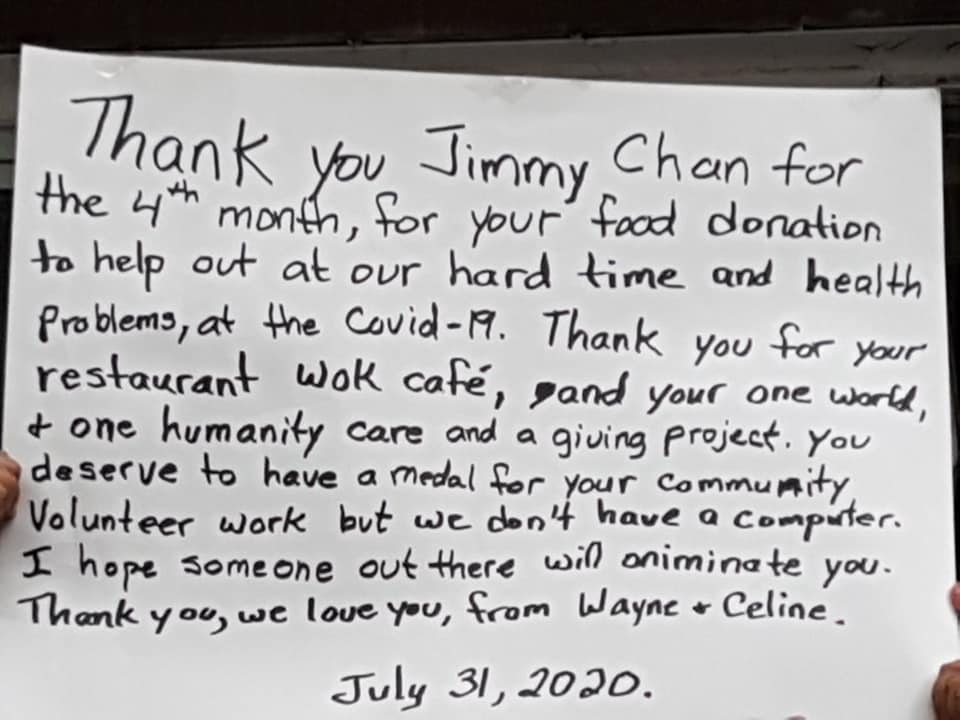 Thank you Jimmy Chan for
the 4th month, for your food donation
to help out at our hard time and health
Problems, at the Covid-19. Thank you for your
restaurant Wok café, and your one world,
+ one humanity care and a giving project. You
deserve to have a medal for your community
Volunteer work but we don't have a computer.
I hope someone out there will oniminate you.
Thank you, we love you, from Wayne + Celine.
July 31, 2020.